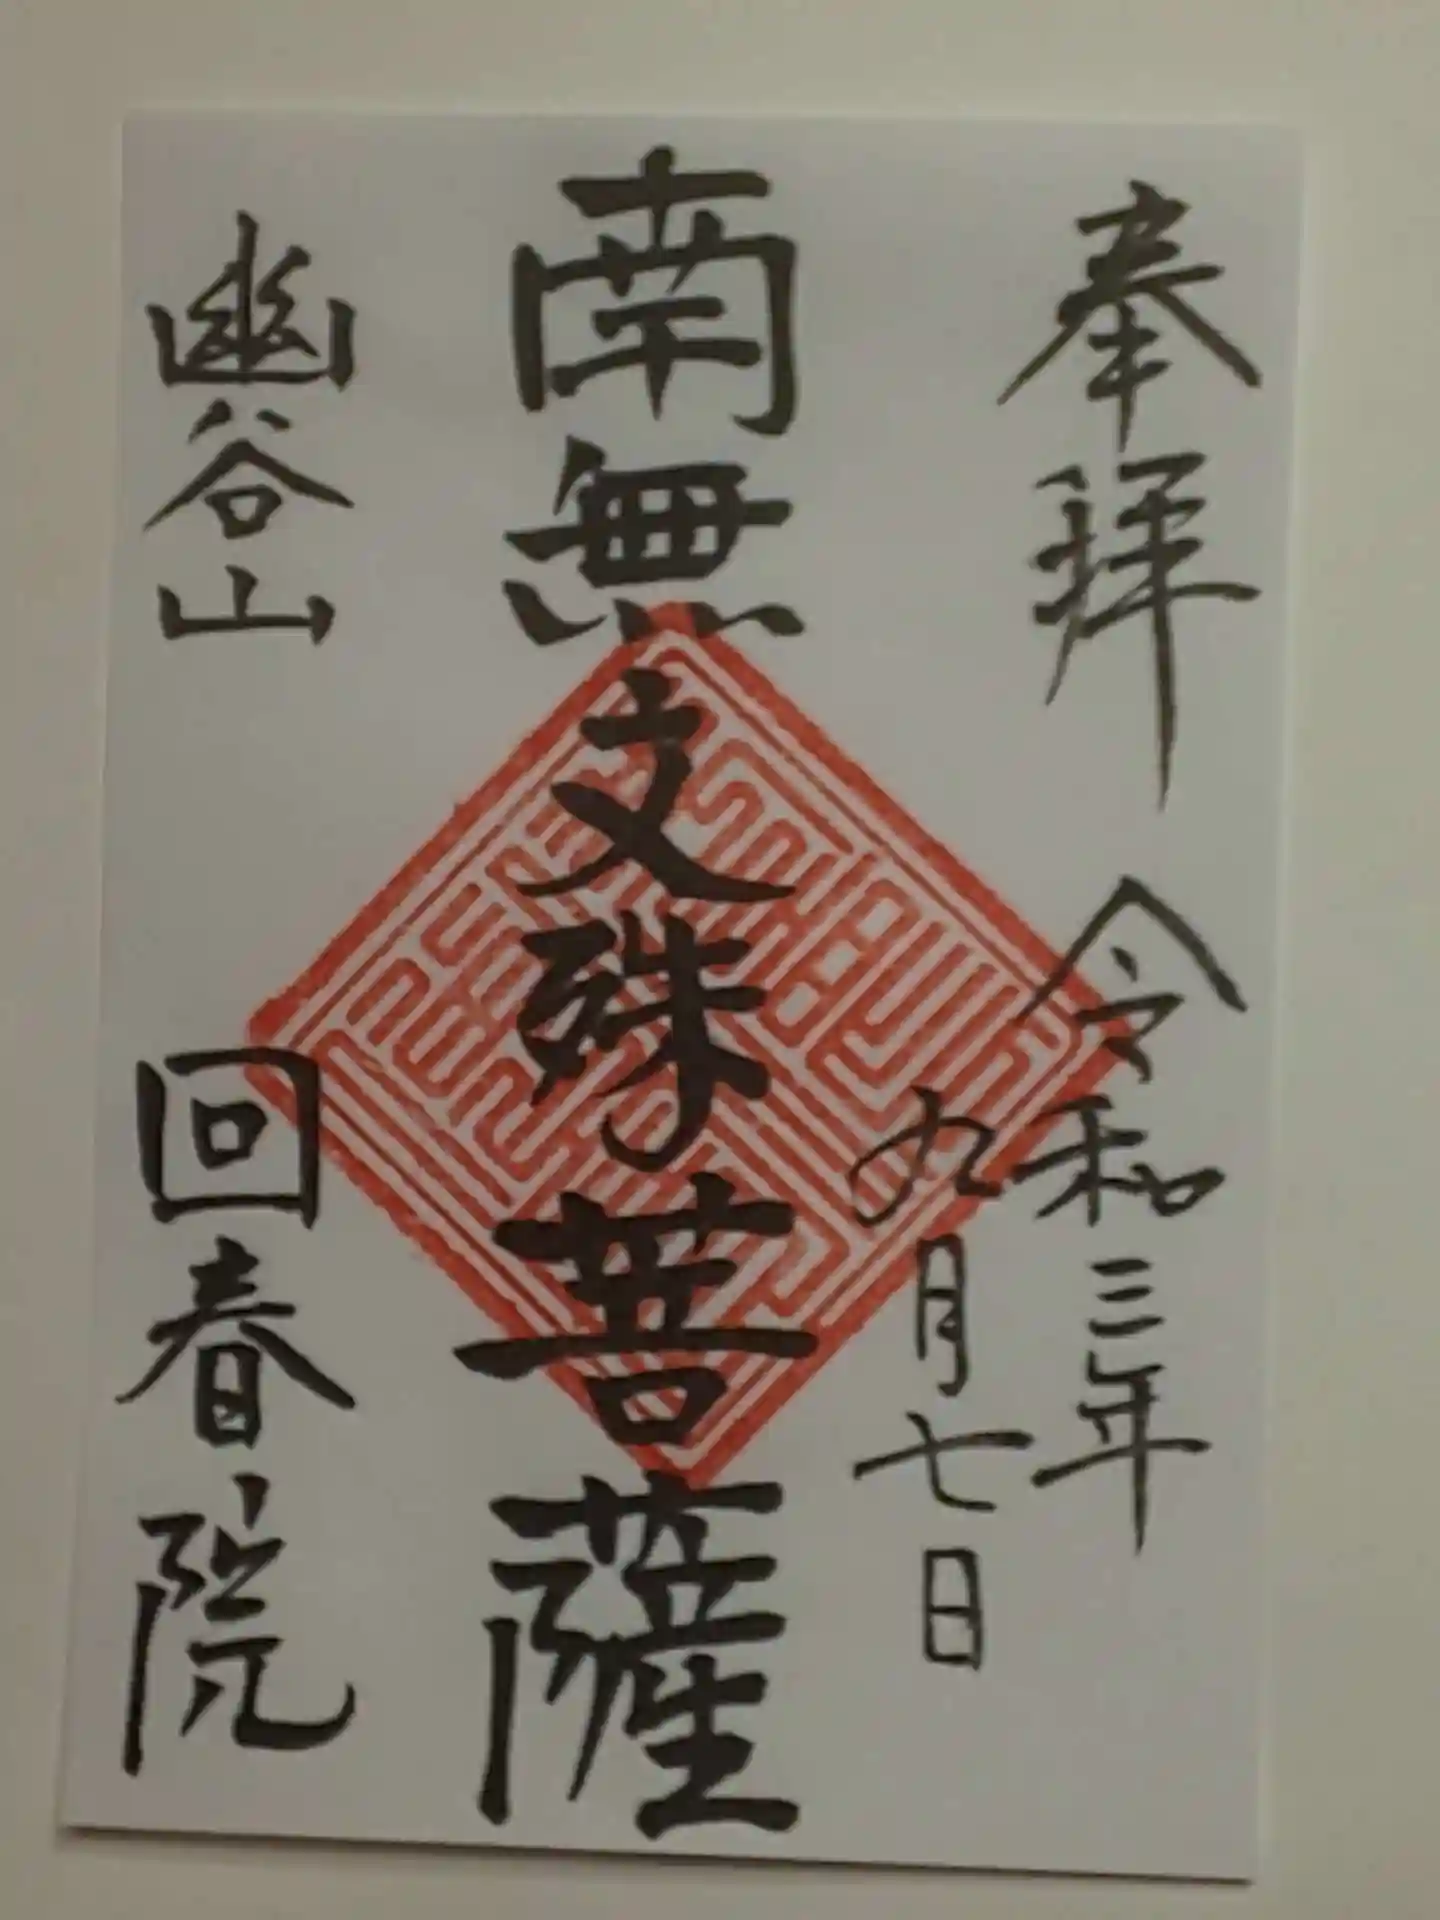 奉拝 令和三年
九月七日
南無文殊菩薩
幽谷山 回春院